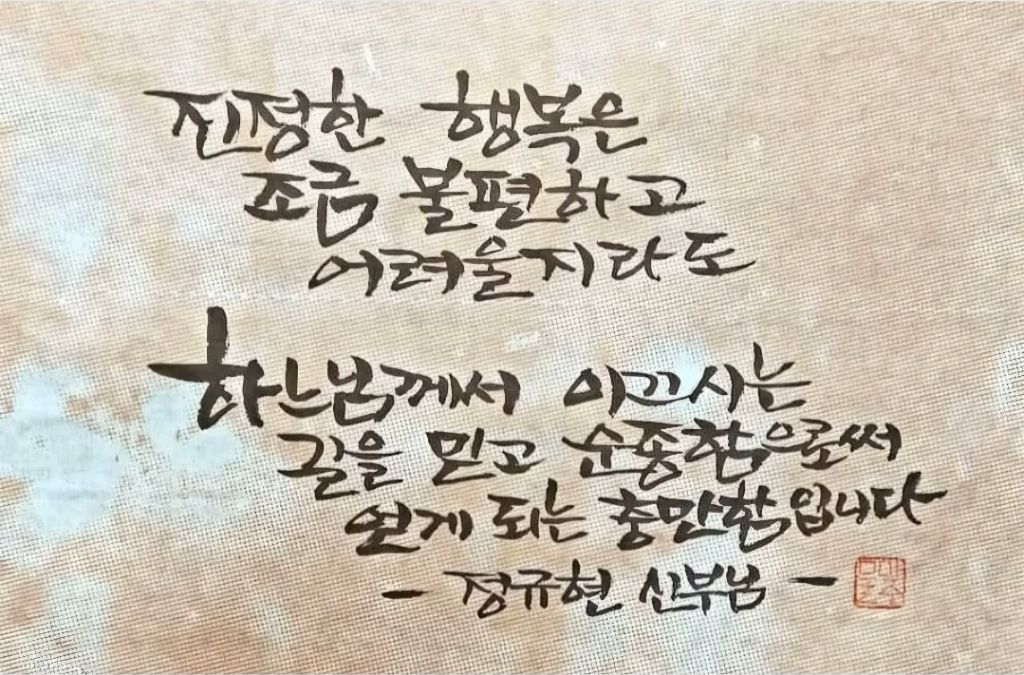 진정한 행복은
조금 불편하고
어려울지라도
하느님께서 이끄시는
길을 믿고 순종함으로써
얻게 되는 충만함입니다
- 정규현 신부님 -